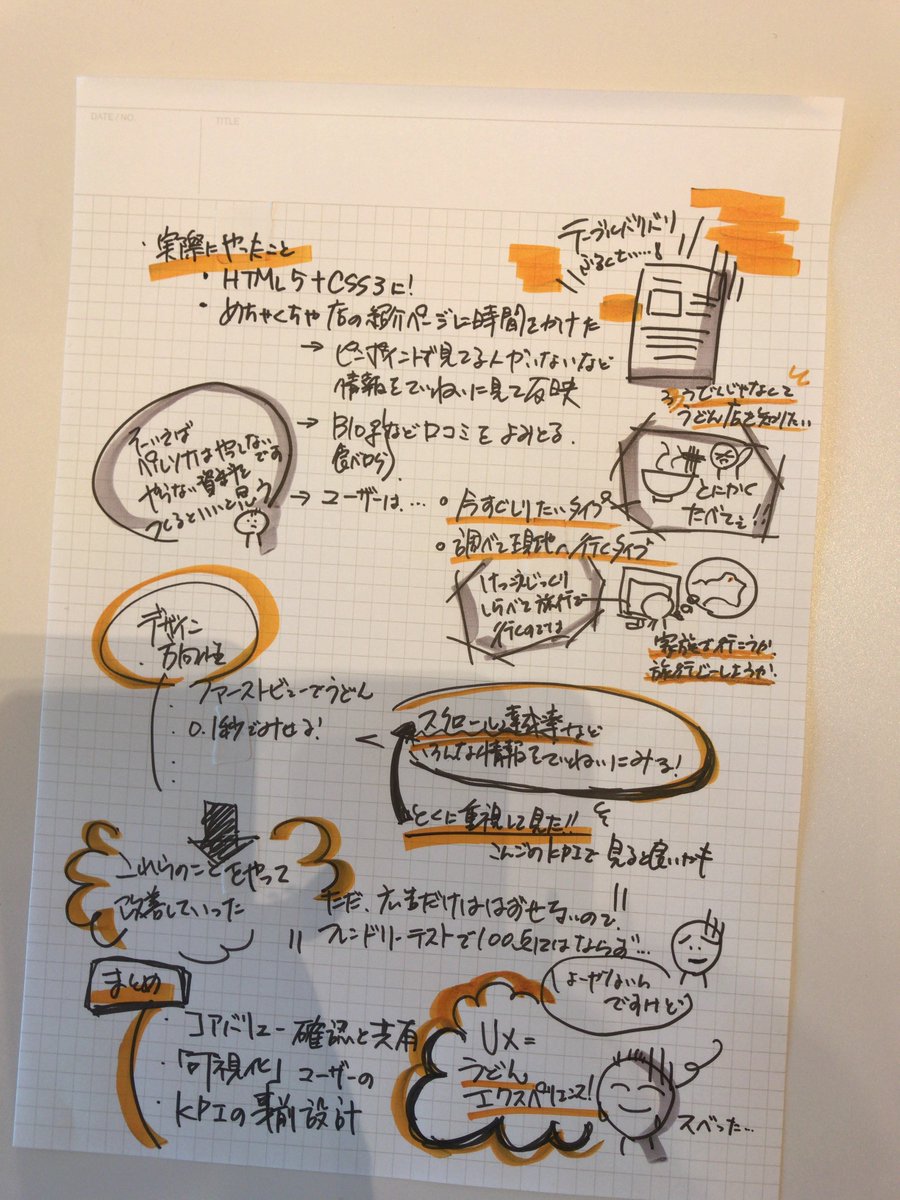 DATE/NO.
TITLE
・実際にやったこと
・HTML5+CSS3に!
・めちゃくちゃ店の紹介ページに時間をかけた
→ピンポイントで見てる人がいないなど
情報をていねいに見て反映
→Blogなど口コミをよみとる.
(食べログ)
→ユーザーは…
・今すぐしりたいタイプ
・調べて現地へ行くタイプ
テーブルバリバリ
ふるくさい……!
うどんじゃなくて
うどん店を知りたい
とにかく
たべてぇ!!
そーいえば
ペルソナはやらしないです
やらない資料を
つくるといいと思う
けっこうじっくり
しらべて旅行で
行くのでは
家族で行こうか.
旅行どーしようか.
デザイン
方向性
・ファーストビューでうどん
・0.1秒でみせる!
スクロール達成率など
いろんな情報をていねいにみる!
とくに重視して見た!!
こんごのKPIで見ると良いかも
これらのことをやって
改善していった
ただ、広告だけははずせないので、
フレンドリーテストで100点にはならず…
(しょーがないん
ですけど)
まとめ
・コアバリュー確認と共有
・「可視化」ユーザーの
・KPIの事前設計
UX=
うどん
エクスペリエンス!
スベった…